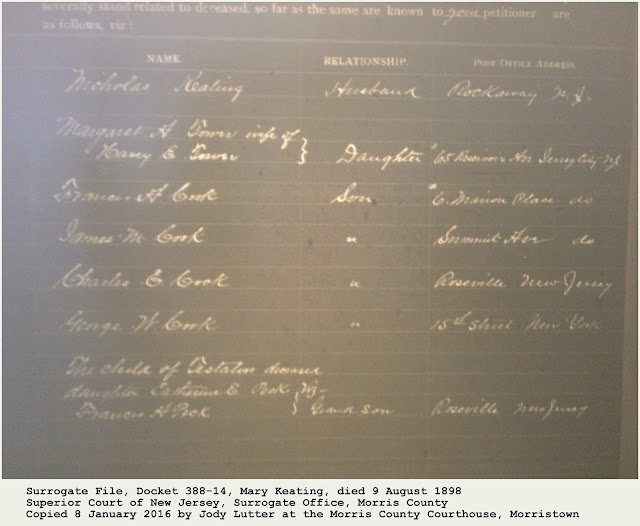 severally stand related to deceased, so far as the same are known to your petitioner are
as follows, viz:
NAME. RELATIONSHIP. POST OFFICE ADDRESS.
Nicholas Keating Husband Rockaway N.J.
Margaret A Town wife of
Harry E Town } Daughter 65 Reservoir Ave Jersey City NJ
Francis A Cook Son 6 Marion Place do
James M Cook " Summit Ave do
Charles E. Cook " Roseville New Jersey
George W. Cook " 15th Street New York
The child of Testators deceased
daughter Catherine E. Peck, viz-
Francis A Peck } Grand son Roseville New Jersey
Surrogate File, Docket 388-14, Mary Keating, died 9 August 1898
Superior Court of New Jersey, Surrogate Office, Morris County
Copied 8 January 2016 by Jody Lutter at the Morris County Courthouse, Morristown